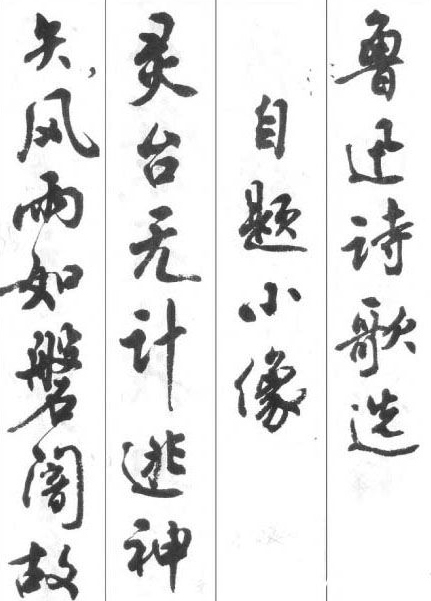 鲁迅诗歌选
自题小像
灵台无计逃神
矢,风雨如磐闇故